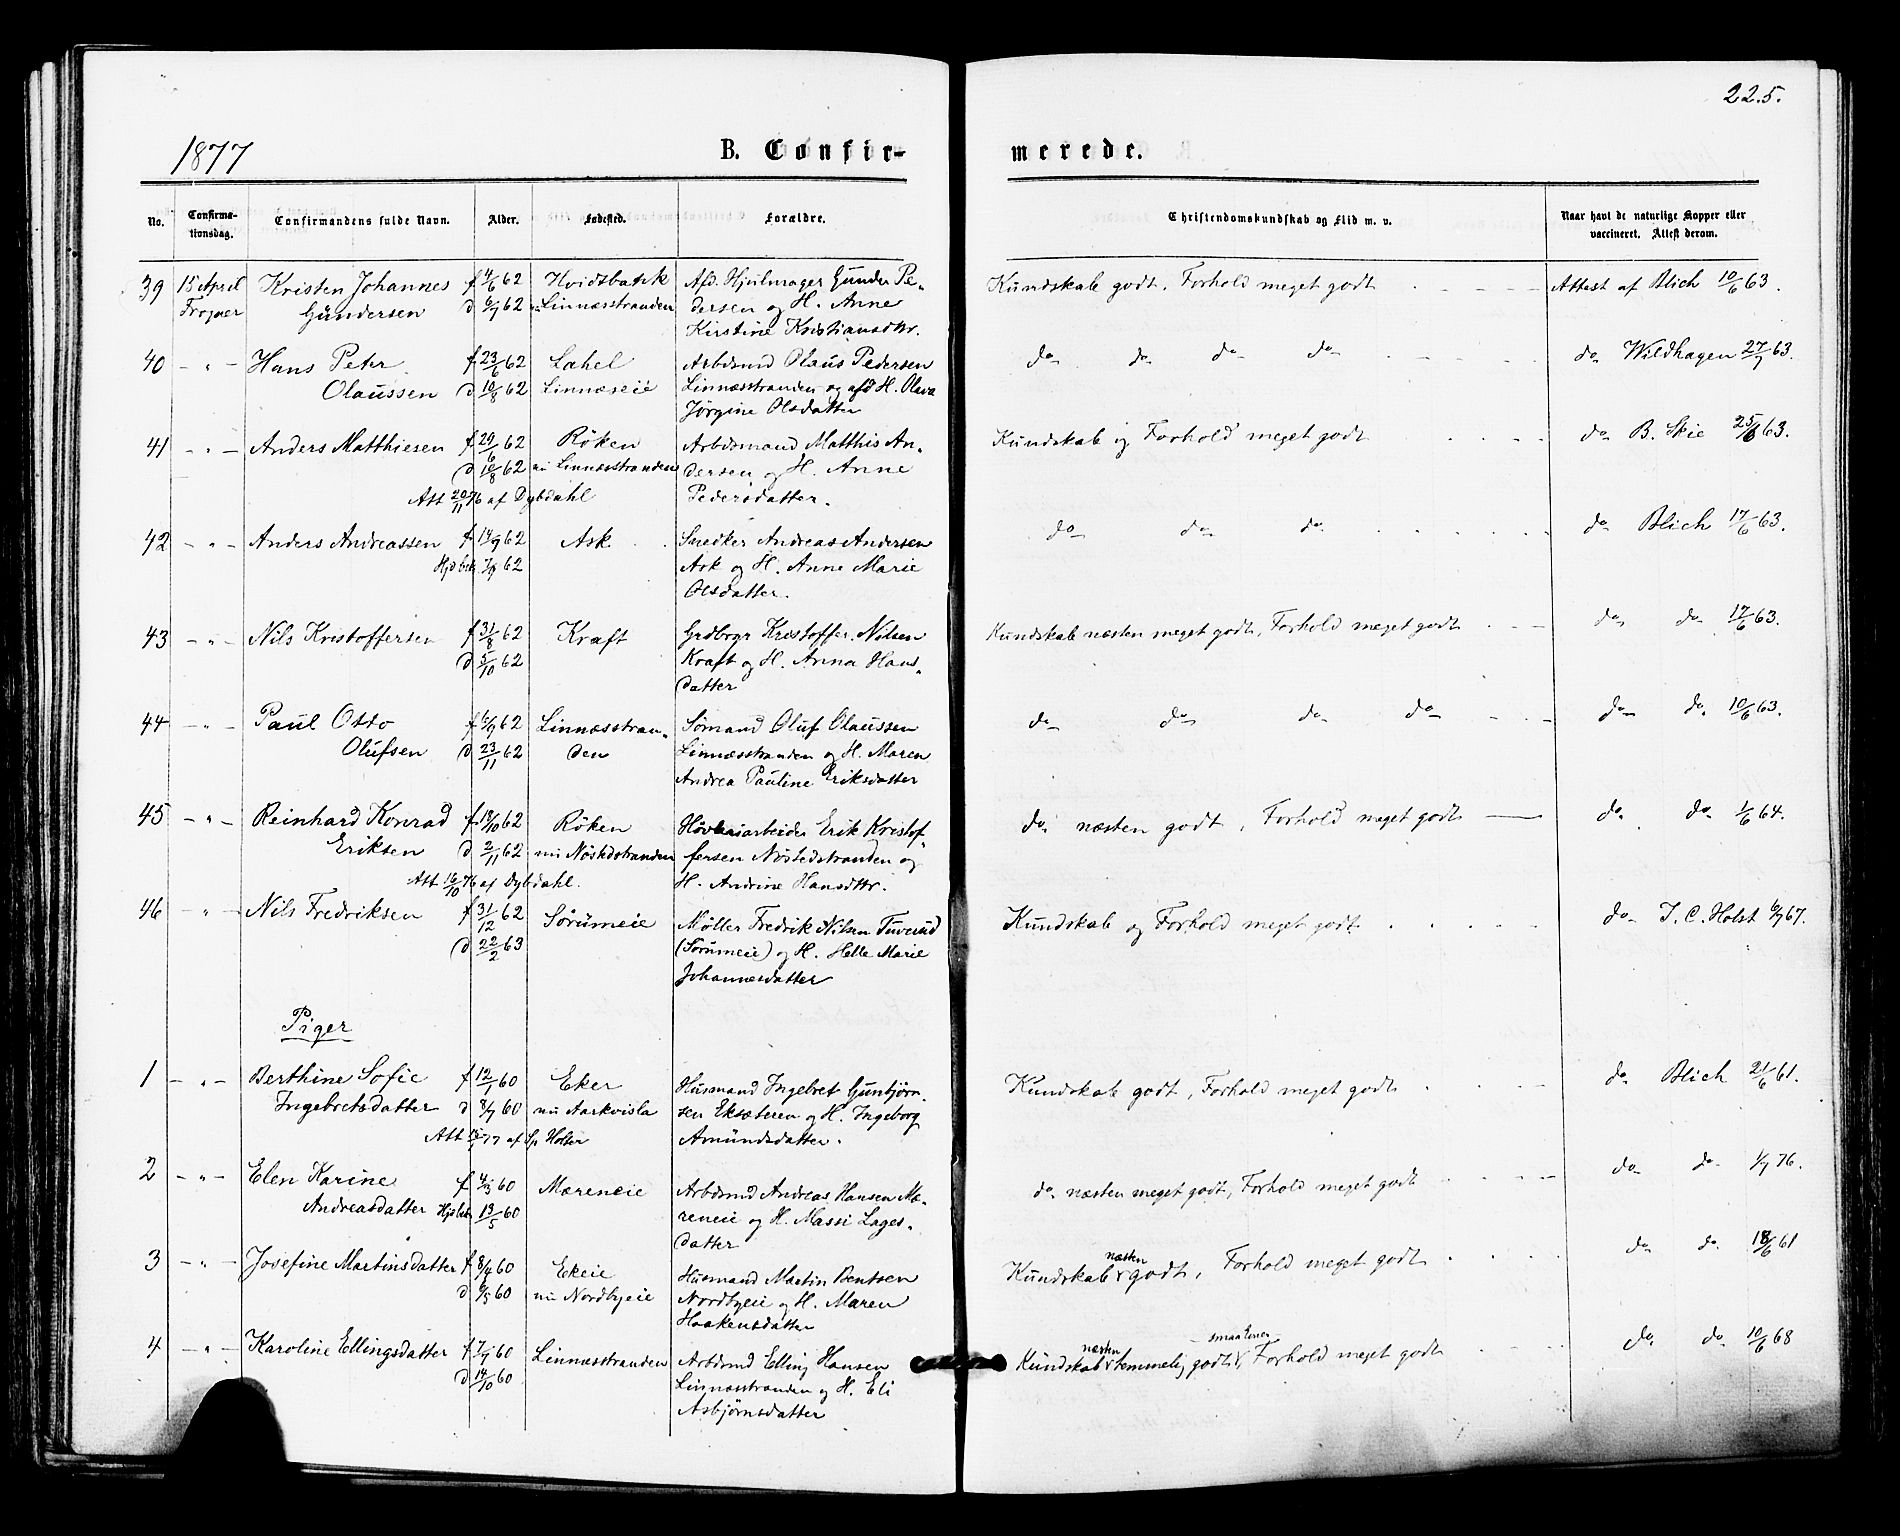 22.5.
1877 B. Confir- merede.
No. Confirma-tionsdag. Confirmandens fulde Navn. Alder. Fødested. Forældre. Christendomskundskab og Flid m. v. Naar havt de naturlige Kopper eller vaccineret. Attest derom.
39 15 April Kristen Johannes f 4/6 62 Hvidtbatsk Afd. Hjulmager Gunder Pe- Kundskab godt, Forhold meget godt Attest af Blich 10/6 63.
Frogner Gundersen d 6/7 62 nu Linnæsstranden dersen og H. Anne
Kirstine Kristiansdtr.
40 - " - Hans Peter f 23/6 62 Lahel Arbdsmd Olaus Pedersen do do do do do Wildhagen 27/7 63.
Olaussen d 10/8 62 Linnæseie Linnæsstranden og afd H. Olava
Jørgine Olsdatter
41 - " - Anders Matthiesen f 29/6 62 Röken Arbdsmand Matthis An- Kundskab og Forhold meget godt do B. Skie 25/6 63.
d 10/8 62 nu Linnæsstranden dersen og H. Anne
Att 20/11 76 af Dybdahl Pedersdatter.
42 - " - Anders Andreassen f 14/9 62 Ask Snedker Andreas Andersen do do do do Blich 17/6 63.
Hjdbt 7/9 62 Ask og H. Anne Marie
Olsdatter.
43 - " - Nils Kristoffersen f 31/8 62 Kraft Grdbrgr Kristoffer Nilsen Kundskab næsten meget godt, Forhold meget godt do do 17/6 63.
d 5/10 62 Kraft og H. Anna Hans-
datter
44 - " - Paul Otto f 6/9 62 Linnæsstran- Sømand Oluf Olaussen do do do do do do 10/6 63.
Olufsen d 23/11 62 den Linnæsstranden og H. Maren
Andrea Pauline Eriksdatter
45 - " - Reinhard Konrad f 18/10 62 Röken Høvleriarbeider Erik Kristof- do næsten godt, Forhold meget godt do do 1/6 64.
Eriksen d 2/11 62 nu Nöstedstranden fersen Nöstedstranden og
Att 16/10 76 af Dybdahl. H. Andrine Hansdtr.
46 - " - Nils Fredriksen f 31/12 62 Sörumeie Møller Fredrik Nilsen Tuverud Kundskab og Forhold meget godt do J. C. Holst 6/7 67.
d 22/2 63 (Sörumeie) og H. Helle Marie
Johannesdatter
Piger
1 - " - Berthine Sofie f 12/1 60 Eker Husmand Ingebret Gunbjörn- Kundskab godt, Forhold meget godt do Blich 21/6 61.
Ingebretsdatter d 8/7 60 nu Aarkvisla sen Eksæteren og H. Ingeborg
Att 77 af Sp Holter Amundsdatter.
2 - " - Elen Karine f 4/3 60 Mæreneie Arbdsmd Andreas Hansen Mæ- do næsten meget godt, Forhold meget godt do do 1/7 76.
Andreasdatter Hjdbt 13/5 60 reneie og H. Massi Lages-
datter
3 - " - Josefine Martinsdatter f 8/4 60 Ekeie Husmand Martin Bentsen Kundskab næsten godt, Forhold meget godt do do 18/6 61
d 6/5 60 nu Nordbyeie Nordbyeie og H. Maren
Haakensdatter
4 - " - Karoline Ellingsdatter f 7/7 60 Linnæsstranden Arbdsmd Elling Hansen Kundskab næsten temmelig godt, smaa Evner, Forhold meget godt do do 10/6 68
d 14/10 60 Linnæsstranden og H. Eli
Asbjörnsdatter